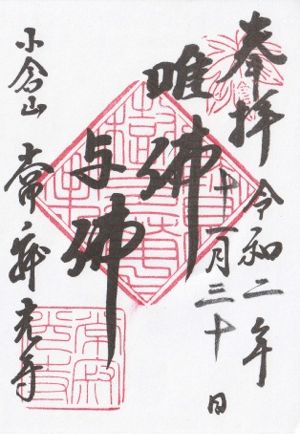 奉拝 令和二年
十一月三十日
唯佛
与佛
小倉山 常寂光寺